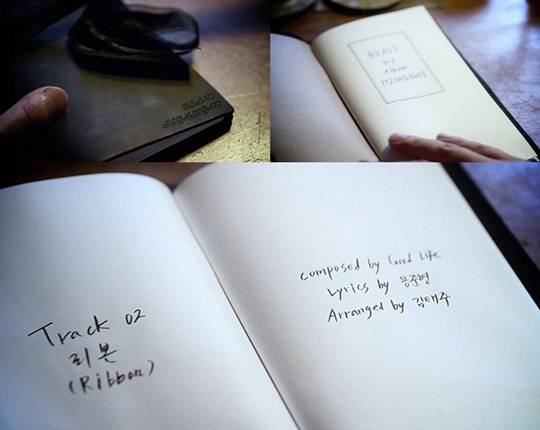 BEAST
3rd
Album
HIGHLIGHT
Track 02
리본
(Ribbon)
Composed by Good Life
Lyrics by 용준형
Arranged by 김태주